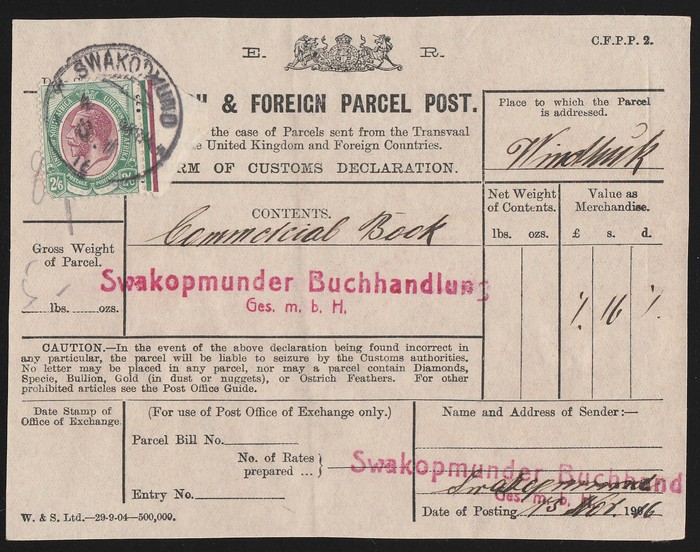 E. R.
C.F.P.P. 2.
SWAKOPMUND
& FOREIGN PARCEL POST.
the case of Parcels sent from the Transvaal
United Kingdom and Foreign Countries.
RM OF CUSTOMS DECLARATION.
2/6 2/6
Place to which the Parcel
is addressed.
Windhuk
CONTENTS.
Commercial Book
Net Weight
of Contents.
lbs. ozs.
Value as
Merchandise.
£ s. d.
16
Gross Weight
of Parcel.
lbs. ozs.
Swakopmunder Buchhandlung
Ges. m. b. H.
CAUTION.—In the event of the above declaration being found incorrect in
any particular, the parcel will be liable to seizure by the Customs authorities.
No letter may be placed in any parcel, nor may a parcel contain Diamonds,
Specie, Bullion, Gold (in dust or nuggets), or Ostrich Feathers. For other
prohibited articles see the Post Office Guide.
Date Stamp of
Office of Exchange.
(For use of Post Office of Exchange only.)
Parcel Bill No.
No. of Rates
prepared ...
Entry No.
Name and Address of Sender:—
Swakopmunder Buchhand
Ges. m. b. H.
Swakopmund
Date of Posting 13 Nov. 1916
W. & S. Ltd.—29-9-04—500,000.